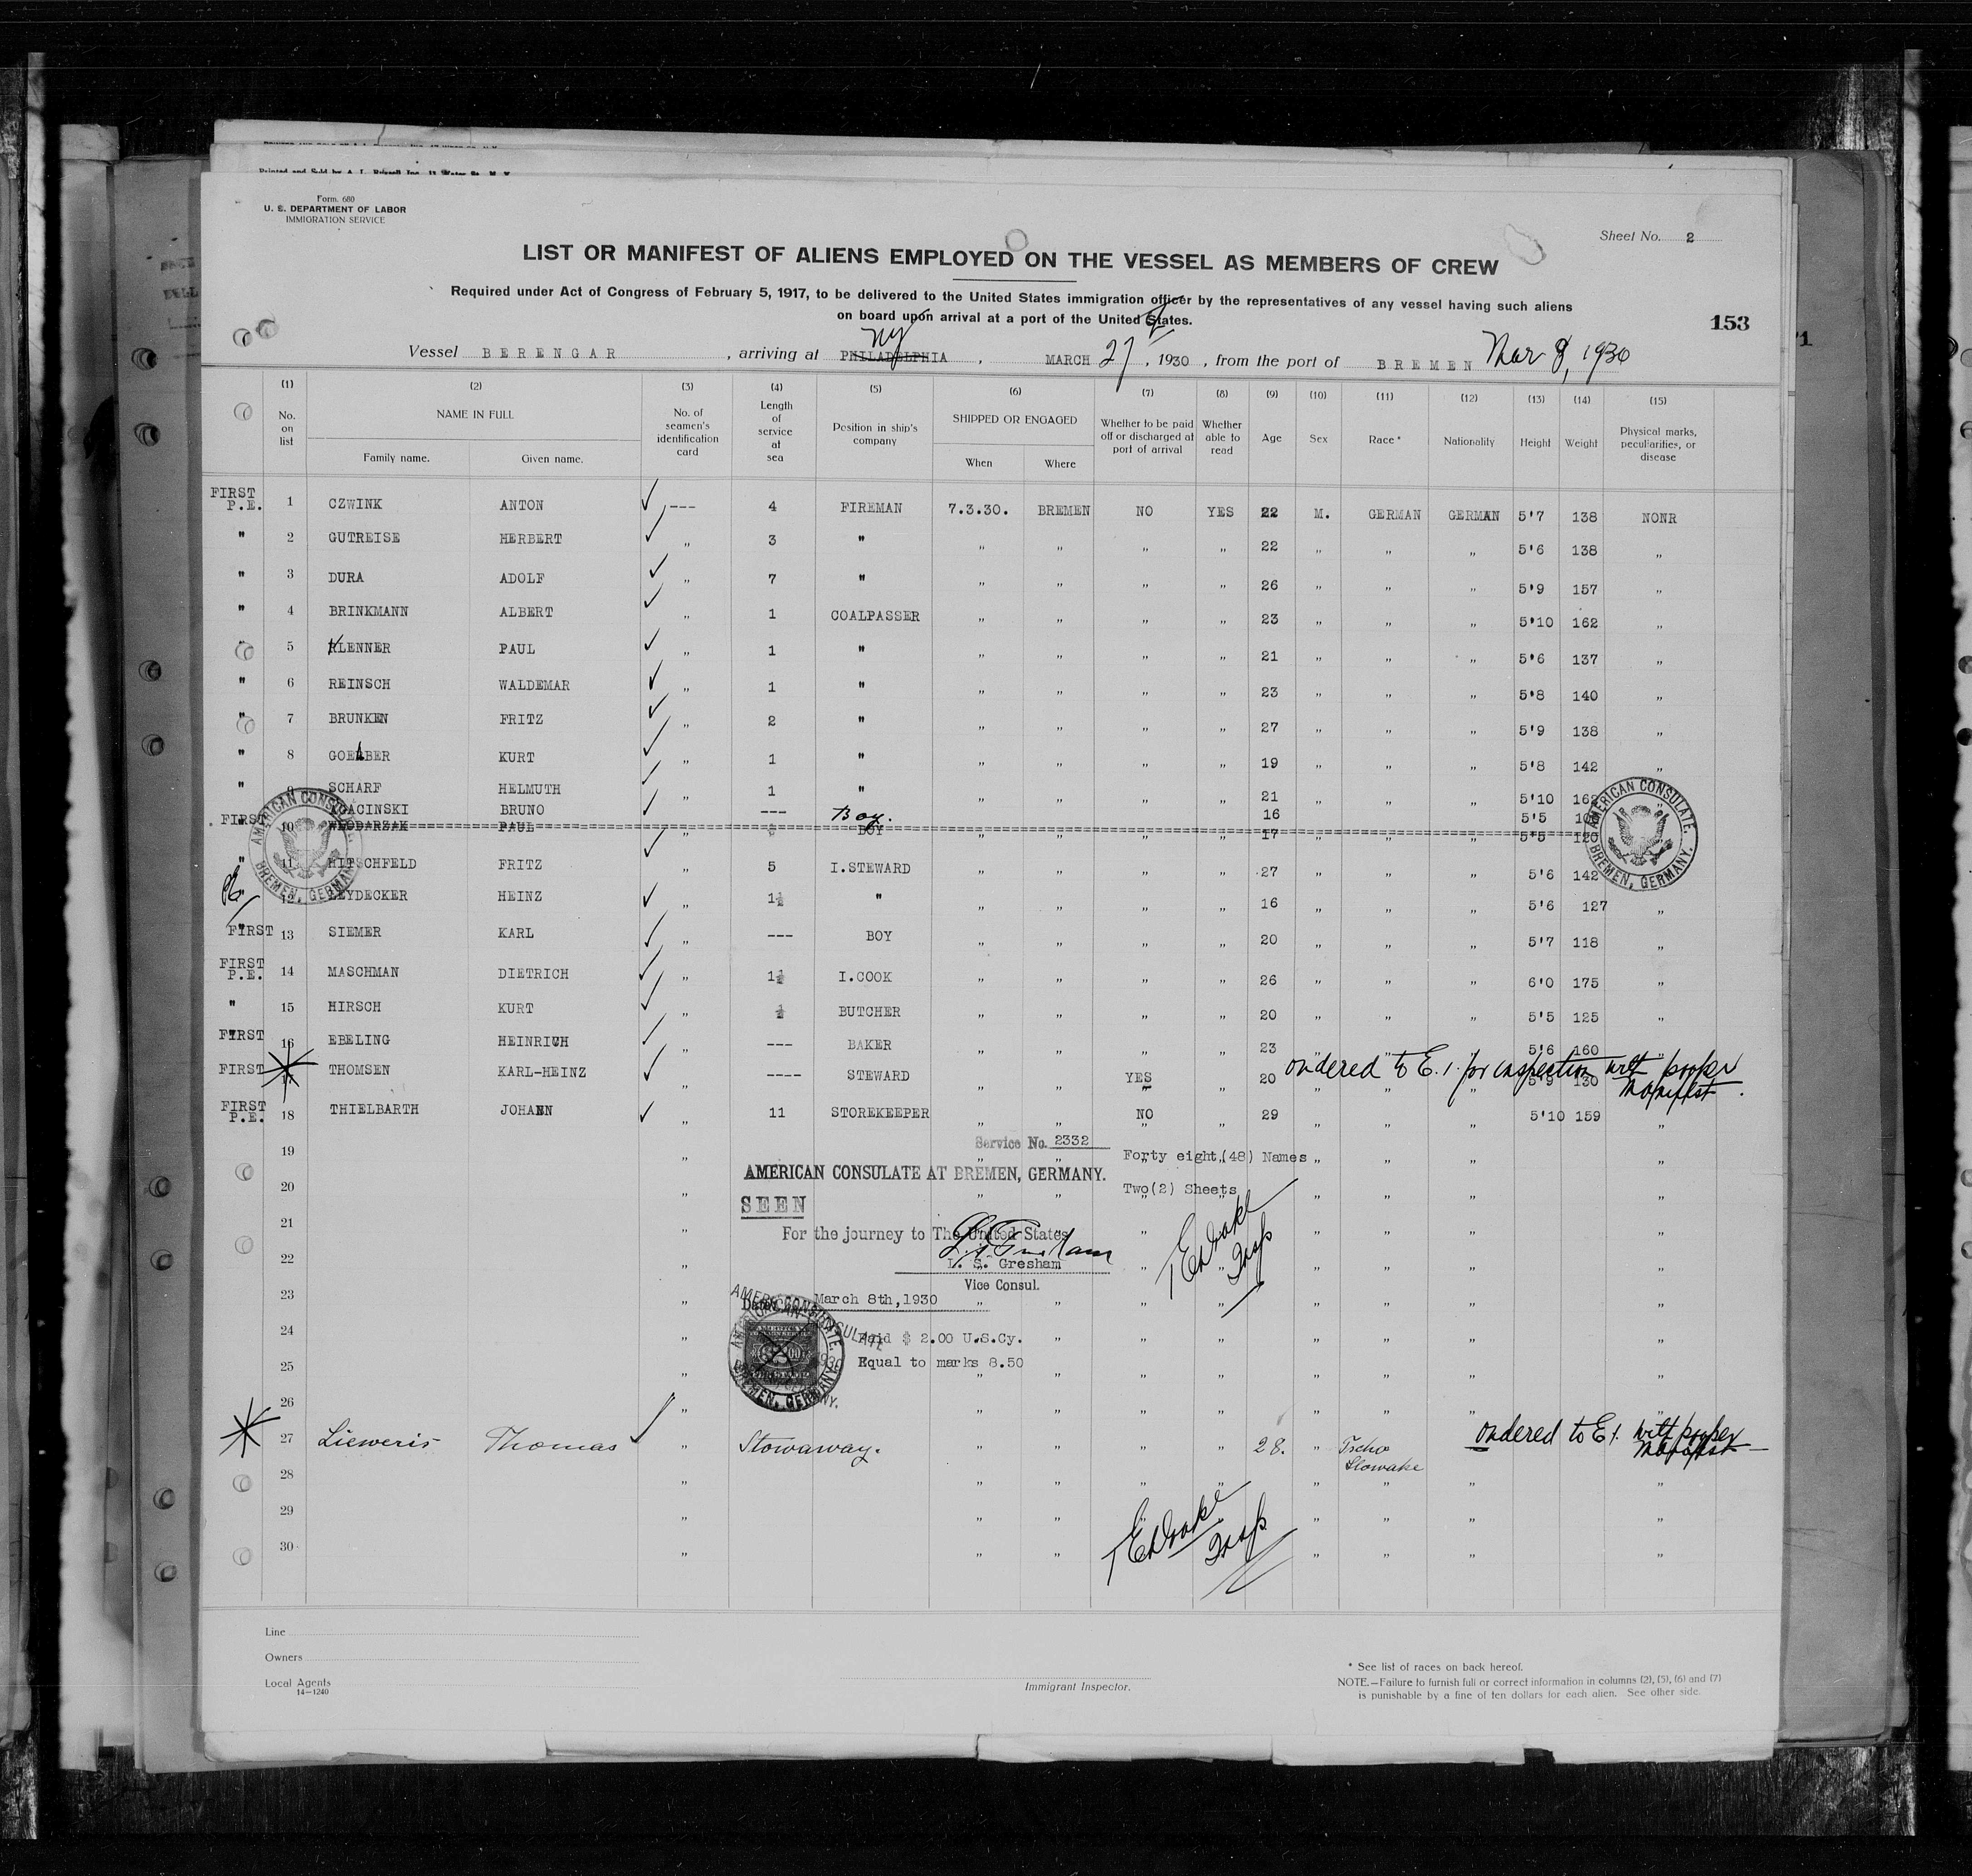 Printed and Sold by A. L. Russell Inc. 13 Water St. N. Y.
Form. 680
U. S. DEPARTMENT OF LABOR
IMMIGRATION SERVICE
Sheet No. 2
LIST OR MANIFEST OF ALIENS EMPLOYED ON THE VESSEL AS MEMBERS OF CREW
Required under Act of Congress of February 5, 1917, to be delivered to the United States immigration officer by the representatives of any vessel having such aliens
on board upon arrival at a port of the United States.
153
Vessel BERENGAR , arriving at PHILADELPHIA NY , MARCH 27 , 1930 , from the port of BREMEN Mar 8, 1930
(1) (2) (3) (4) (5) (6) (7) (8) (9) (10) (11) (12) (13) (14) (15)
No. on list NAME IN FULL Family name. Given name. No. of seamen's identification card Length of service at sea Position in ship's company SHIPPED OR ENGAGED When Where Whether to be paid off or discharged at port of arrival Whether able to read Age Sex Race * Nationality Height Weight Physical marks, peculiarities, or disease
FIRST P.E. 1 CZWINK ANTON --- 4 FIREMAN 7.3.30. BREMEN NO YES 22 M. GERMAN GERMAN 5'7 138 NONR
" 2 GUTREISE HERBERT " 3 " " " " " 22 " " " 5'6 138 "
" 3 DURA ADOLF " 7 " " " " " 26 " " " 5'9 157 "
" 4 BRINKMANN ALBERT " 1 COALPASSER " " " " 23 " " " 5'10 162 "
" 5 KLENNER PAUL " 1 " " " " " 21 " " " 5'6 137 "
" 6 REINSCH WALDEMAR " 1 " " " " " 23 " " " 5'8 140 "
" 7 BRUNKEN FRITZ " 2 " " " " " 27 " " " 5'9 138 "
" 8 GOERBER KURT " 1 " " " " " 19 " " " 5'8 142 "
" 9 SCHARF HELMUTH " 1 " " " " " 21 " " " 5'10 162 "
FIRST BRUNO --- Boy. 16 5'5
" 10 WLODARZAK PAUL BOY " " " " 17 " " " 5'5 120
" 11 HITSCHFELD FRITZ " 5 I.STEWARD " " " " 27 " " " 5'6 142
" 12 LEYDECKER HEINZ " 1½ " " " " " 16 " " " 5'6 127 "
FIRST 13 SIEMER KARL " --- BOY " " " " 20 " " " 5'7 118 "
FIRST P.E. 14 MASCHMAN DIETRICH " 1½ I.COOK " " " " 26 " " " 6'0 175 "
" 15 HIRSCH KURT " ½ BUTCHER " " " " 20 " " " 5'5 125 "
FIRST 16 EBELING HEINRICH " --- BAKER " " " " 23 " " " 5'6 160 "
FIRST 17 THOMSEN KARL-HEINZ " ---- STEWARD " " YES " 20 " " " 5'9 130
ordered to E.I. for inspection with proper
Manifest.
FIRST P.E. 18 THIELBARTH JOHANN " 11 STOREKEEPER " " NO " 29 " " " 5'10 159 "
19
20
21
22
23
24
25
26
Service No. 2332
Forty eight (48) Names
AMERICAN CONSULATE AT BREMEN, GERMANY.
Two(2) Sheets
SEEN
For the journey to The United States
L. S. Gresham
Vice Consul.
Date March 8th, 1930
Paid $ 2.00 U.S.Cy.
Equal to marks 8.50
AMERICAN CONSULATE. BREMEN, GERMANY.
AMERICAN CONSULATE. BREMEN, GERMANY.
AMERICAN CONSULATE. BREMEN, GERMANY.
27 Lieweris Thomas " Stowaway. 28. Tscho Slowake
ordered to E.I. with proper
Manifest
28
29
30
Line
Owners
Local Agents
14—1240
Immigrant Inspector.
* See list of races on back hereof.
NOTE.—Failure to furnish full or correct information in columns (2), (5), (6) and (7)
is punishable by a fine of ten dollars for each alien. See other side.